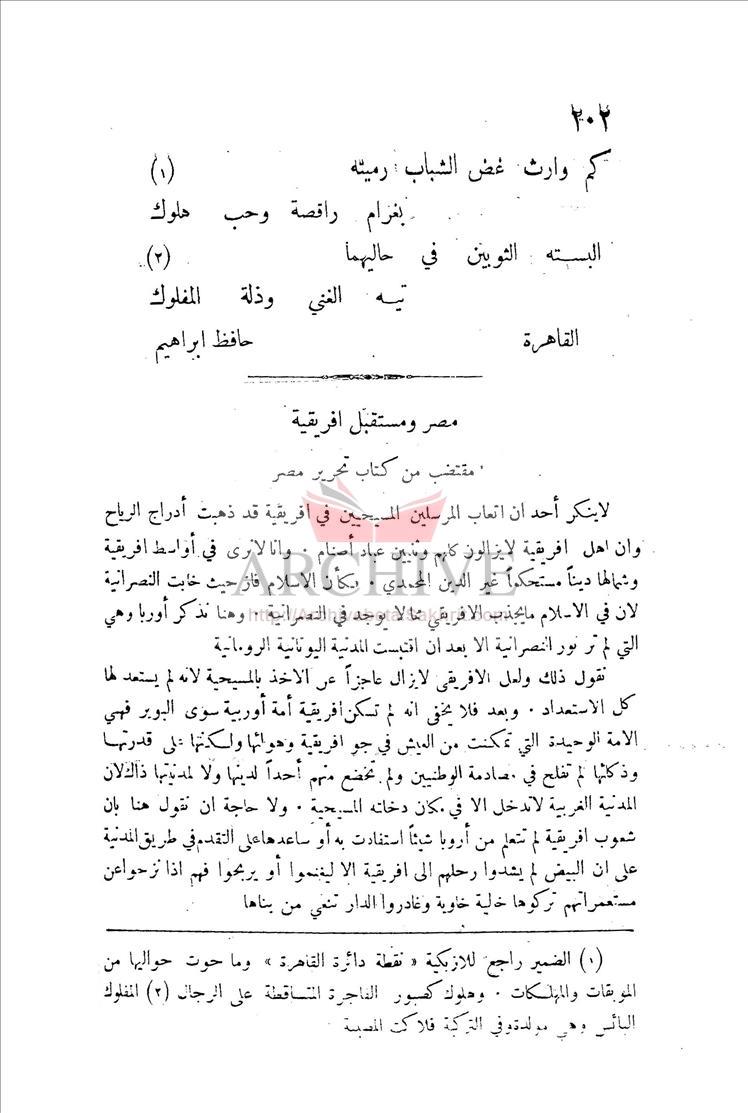 ٢٠٢
كم وارث غض الشباب رميته (١)
بغرام راقصة وحب هلوك
البسته الثوبين في حاليهما (٢)
تيه الغني وذلة المفلوك
القاهرة حافظ ابراهيم
مصر ومستقبل افريقية
مقتضب من كتاب تحرير مصر
لاينكر أحد ان اتعاب المرسلين المسيحيين في افريقية قد ذهبت أدراج الرياح
وان اهل افريقية لايزالون كلهم وثنيين عباد أصنام . وانا لانرى في أواسط افريقية
وشمالها ديناً مستحكماً غير الدين المحمدي . وكأن الاسلام فاز حيث خابت النصرانية
لان في الاسلام مايجذب الافريقي مما لا يوجد في النصرانية . وهنا نذكر أوربا وهي
التي لم تر نور النصرانية الا بعد ان اقتبست المدنية اليونانية الرومانية
نقول ذلك ولعل الافريقي لايزال عاجزاً عن الاخذ بالمسيحية لانه لم يستعد لها
كل الاستعداد . وبعد فلا يخفى انه لم تسكن افريقية أمة أوربية سوى البوير فهي
الامة الوحيدة التي تمكنت من العيش في جو افريقية وهوائها ولكنها على قدرتها
وذكائها لم تفلح في مصادمة الوطنيين ولم تخضع منهم أحداً لدينها ولا لمدنيتها ذلك لان
المدنية الغربية لاتدخل الا في مكان دخلته المسيحية . ولا حاجة ان نقول هنا بان
شعوب افريقية لم تتعلم من أروبا شيئاً استفادت به أو ساعدها على التقدم في طريق المدنية
على ان البيض لم يشدوا رحلهم الى افريقية الا ليغنموا أو يربحوا فهم اذا نزحوا عن
مستعمراتهم تركوها خالية خاوية وغادروا الدار تنعي من بناها
(١) الضمير راجع للازبكية « نقطة دائرة القاهرة » وما حوت حواليها من
الموبقات والمهلكات . وهلوك كصبور الفاجرة المتساقطة على الرجال (٢) المفلوك
البائس وهي مولدة وفي التركية فلاكت المصيبة
ARCHIVE